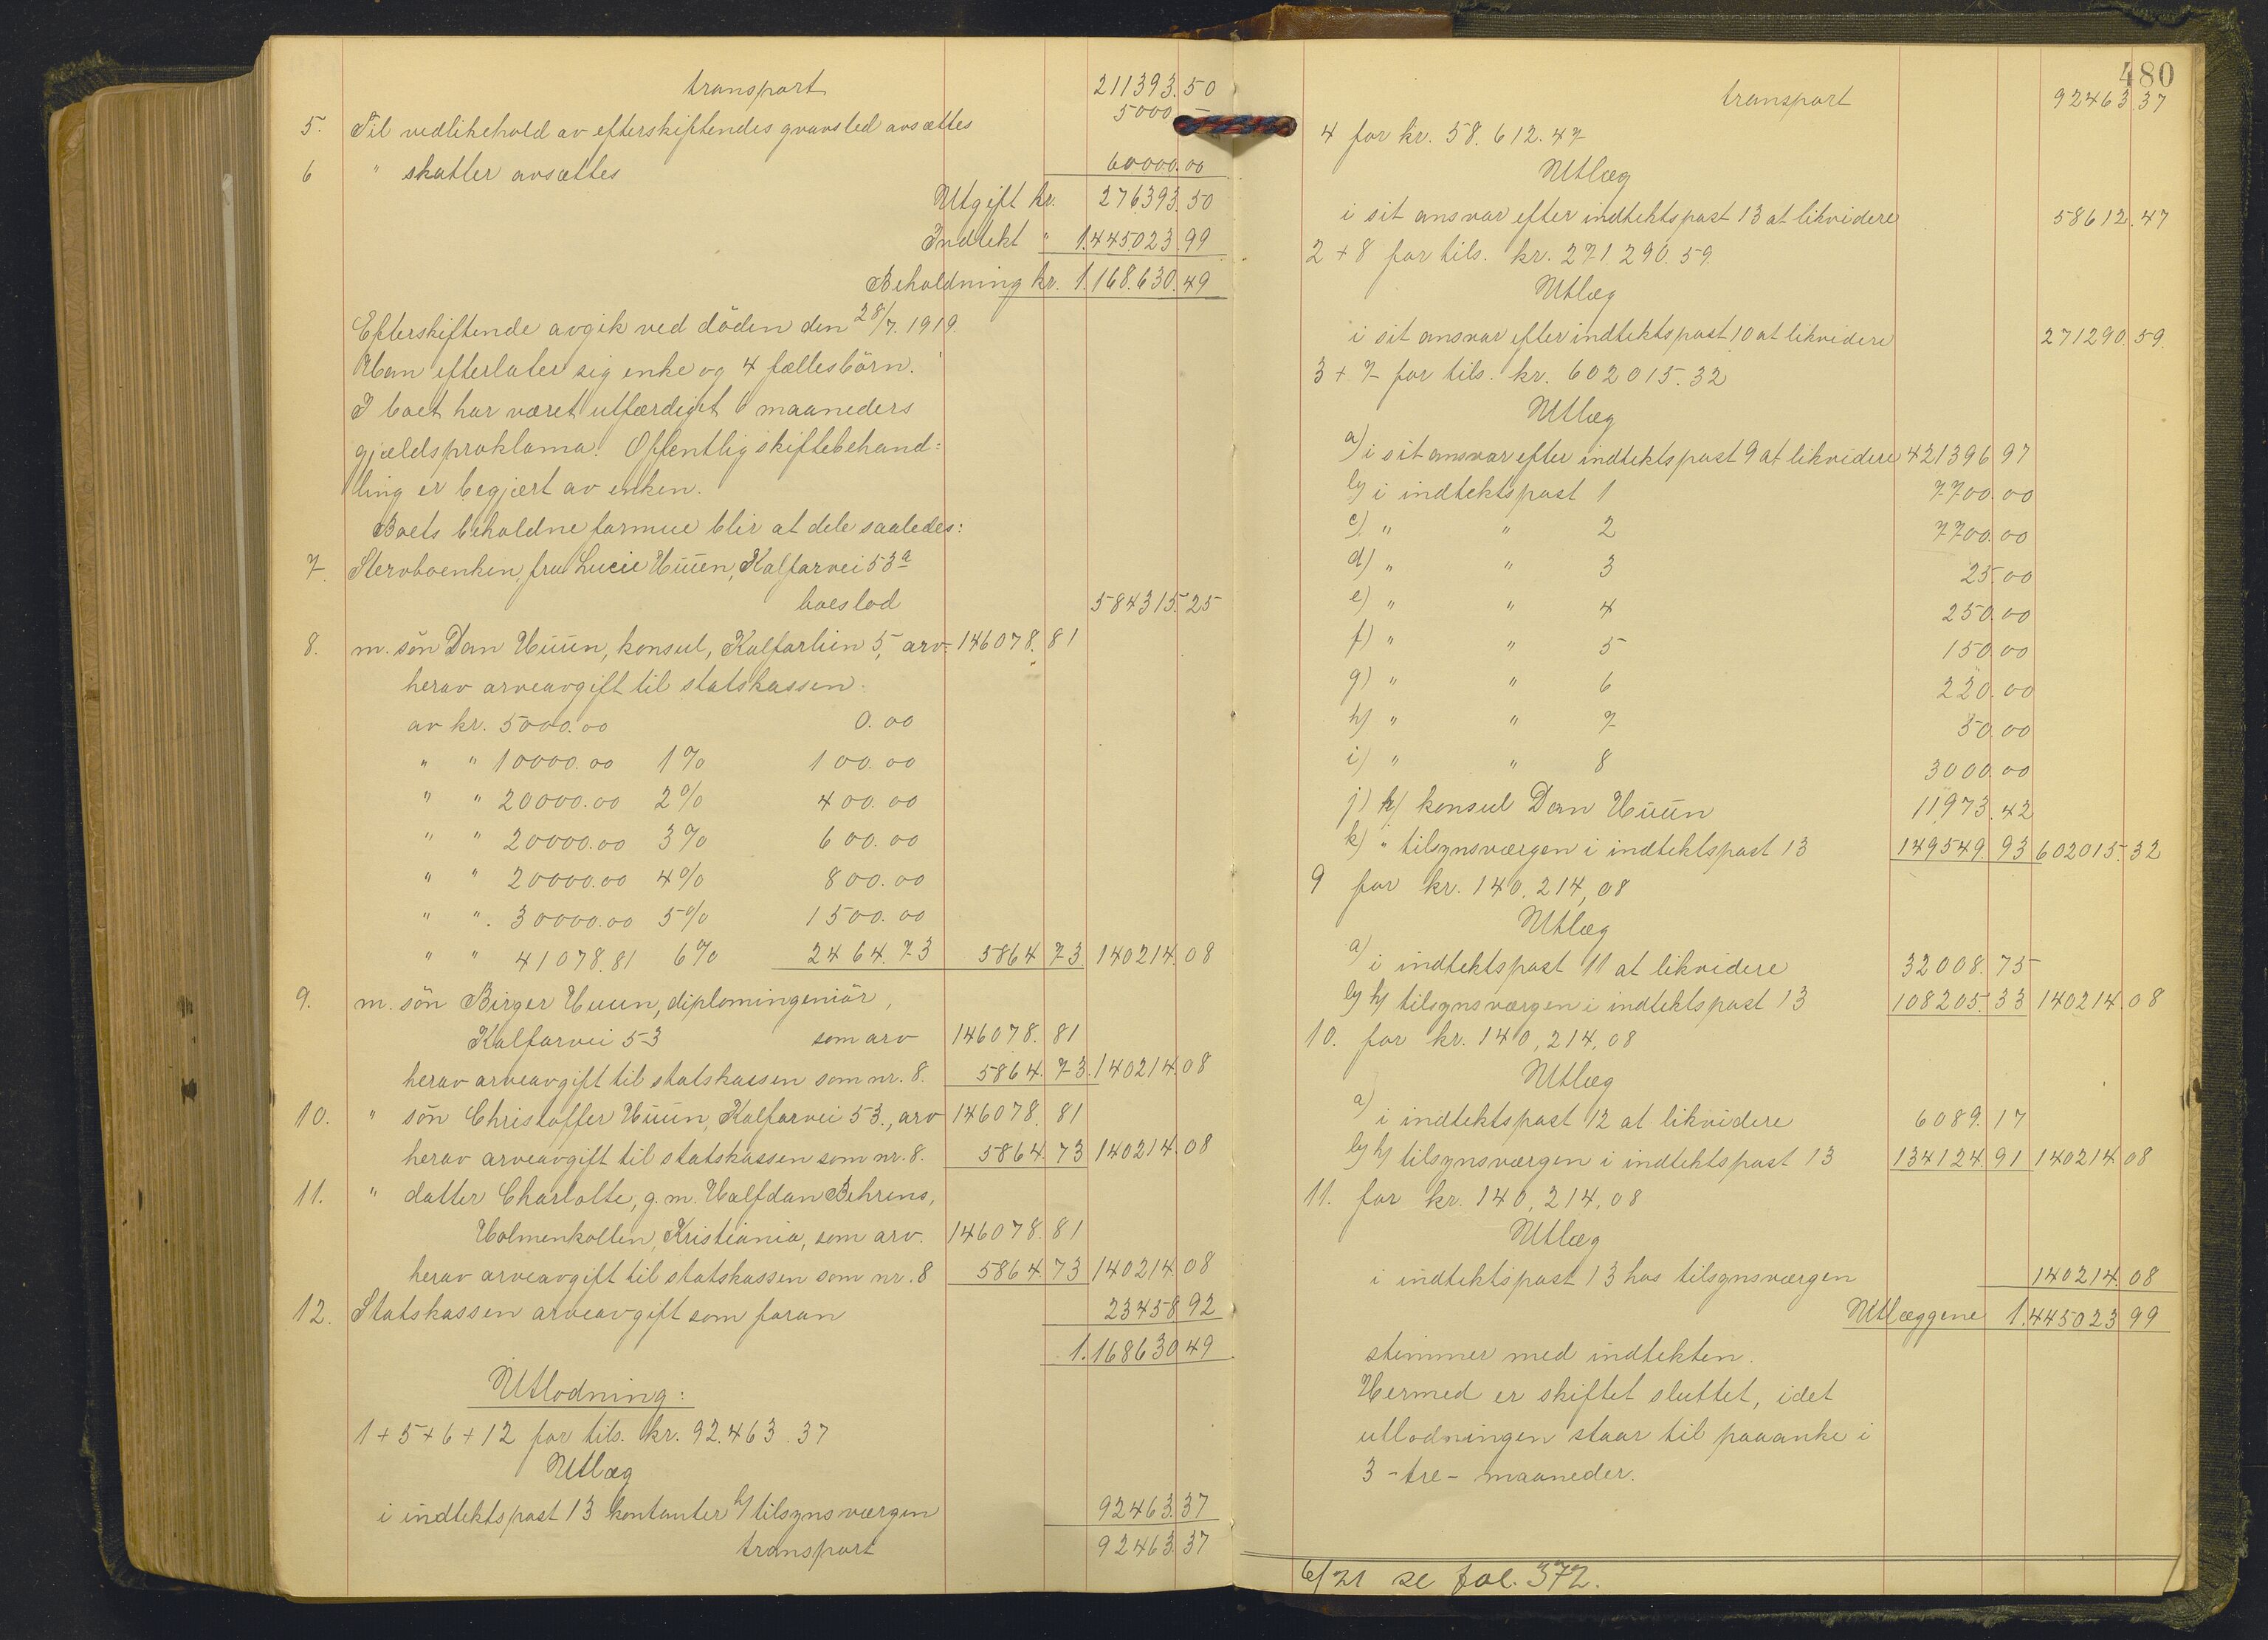 transport 211393.50
5. Til vedlikehold av efterskiftendes gravsted avsættes 5000 –
6 " skatter avsættes 60000.00
Utgift kr. 276393.50
Indtekt " 1.445023.99
Beholdning kr. 1.168.630.49
Efterskiftende avgik ved döden den 28/7. 1919.
Han efterlater sig enke og 4 fællesbörn.
I boet har været utfærdiget 6 maaneders
gjældsproklama. Offentlig skiftebehand=
ling er begjært av enken.
Boets beholdne formue blir at dele saaledes:
7. Stervboenken, fru Lucie Huun, Kalfarvei 53a
boeslod 584315.25
8. m. sön Dan Huun, konsul, Kalfarlien 5, arv= 146078.81
herav arveavgift til statskassen:
av kr. 5000.00 0.00
" " 10000.00 1% 100.00
" " 20000.00 2% 400.00
" " 20000.00 3% 600.00
" " 20000.00 4% 800.00
" " 30000.00 5% 1500.00
" " 41078.81 6% 2464.73 5864 73 140214.08
9. m. sön Birger Huun, diplomingeniör,
Kalfarvei 53 som arv 146078.81
herav arveavgift til statskassen som nr. 8. 5864.73 140214.08
10. " sön Christoffer Huun, Kalfarvei 53., arv 146078.81
herav arveavgift til statskassen som nr. 8. 5864 73 140214.08
11. " datter Charlotte, g.m. Halfdan Behrens,
Holmenkollen, Kristiania, som arv. 146078.81
herav arveavgift til statskassen som nr. 8 5864 73 140214.08
12. Statskassen arveavgift som foran 23458 92
1.168630 49
Utlodning:
1+5+6+12 for tils. kr. 92.463.37
Utlæg
i indtektspost 13 kontanter h/ tilsynsværgen 92463.37
transport 92463.37
480
transport 92463 37
4 for kr. 58.612.47
Utlæg
i sit ansvar efter indtektspost 13 at likvidere 58612.47
2 + 8 for tils. kr. 271.290.59.
Utlæg
i sit ansvar efter indtektspost 10 at likvidere 271290.59.
3 + 7 for tils. kr. 602015.32
Utlæg
a) i sit ansvar efter indtektspost 9 at likvidere 421396 97
b) i indtektspost 1 7700.00
c) " " 2 7700.00
d) " " 3 25.00
e) " " 4 250.00
f) " " 5 150.00
g) " " 6 220.00
h) " " 7 50.00
i) " " 8 3000.00
j) h/ konsul Dan Huun 11973.42
k) " tilsynsværgen i indtektspost 13 149549.93 602015.32
9 for kr. 140.214,08
Utlæg
a) i indtektspost 11 at likvidere 32008.75
b) h/ tilsynsværgen i indtektspost 13 108205.33 140214.08
10. for kr. 140,214,08
Utlæg
a) i indtektspost 12 at likvidere 6089.17
b) h/ tilsynsværgen i indtektspost 13 134124.91 140214.08
11. for kr. 140,214,08
Utlæg
i indtektspost 13 hos tilsynsværgen 140214.08
Utlæggene 1.445023 99
stemmer med indtekten.
Hermed er skiftet sluttet, idet
utlodningen staar til paaanke i
3 - tre - maaneder.
6/21 se fol. 372.